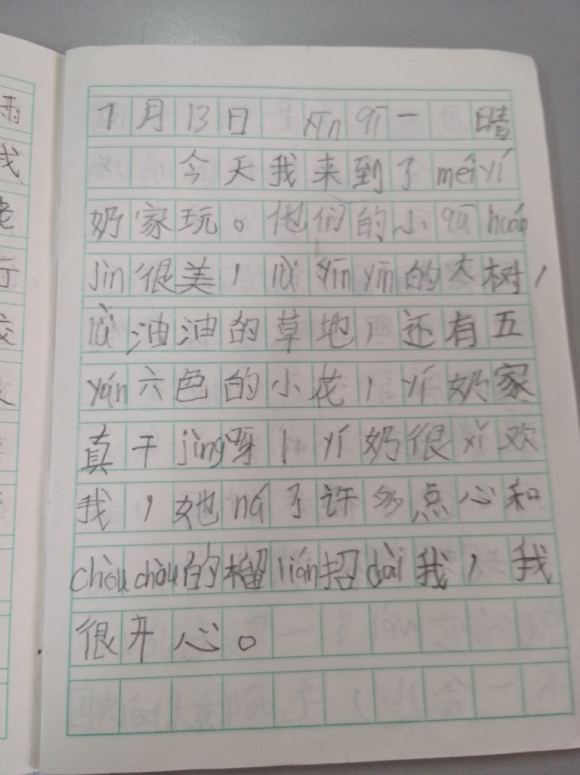 7月13日 xīn qī一 晴
今天我来到了měi yí
奶家玩。他们的小qū huán
jìn很美，lǜ yīn yīn的大树，
lǜ油油的草地，还有五
yán六色的小花，yí奶家
真干jìng呀！yí奶很xǐ欢
我，她ná了许多点心和
chòu chòu的榴lián招dài我，我
很开心。